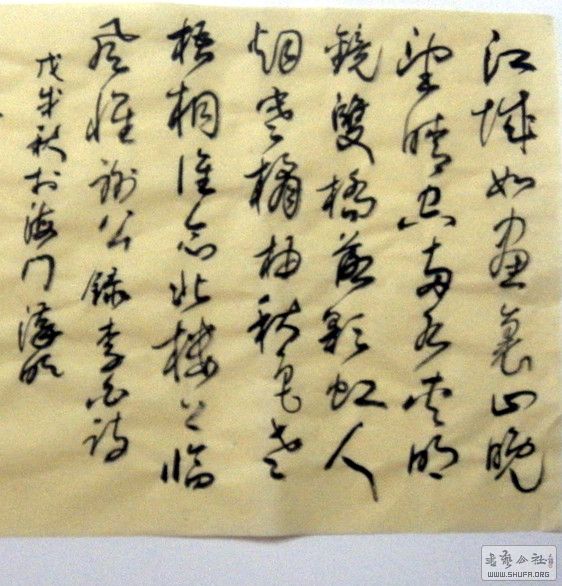 江城如畫裏山晚
望晴空两水夾明
鏡雙橋落彩虹人
烟寒橘柚秋色老
梧桐谁念北樓上临
風懷谢公錄李白詩
戊戌秋於海门
书艺公社
WWW.SHUFA.ORG